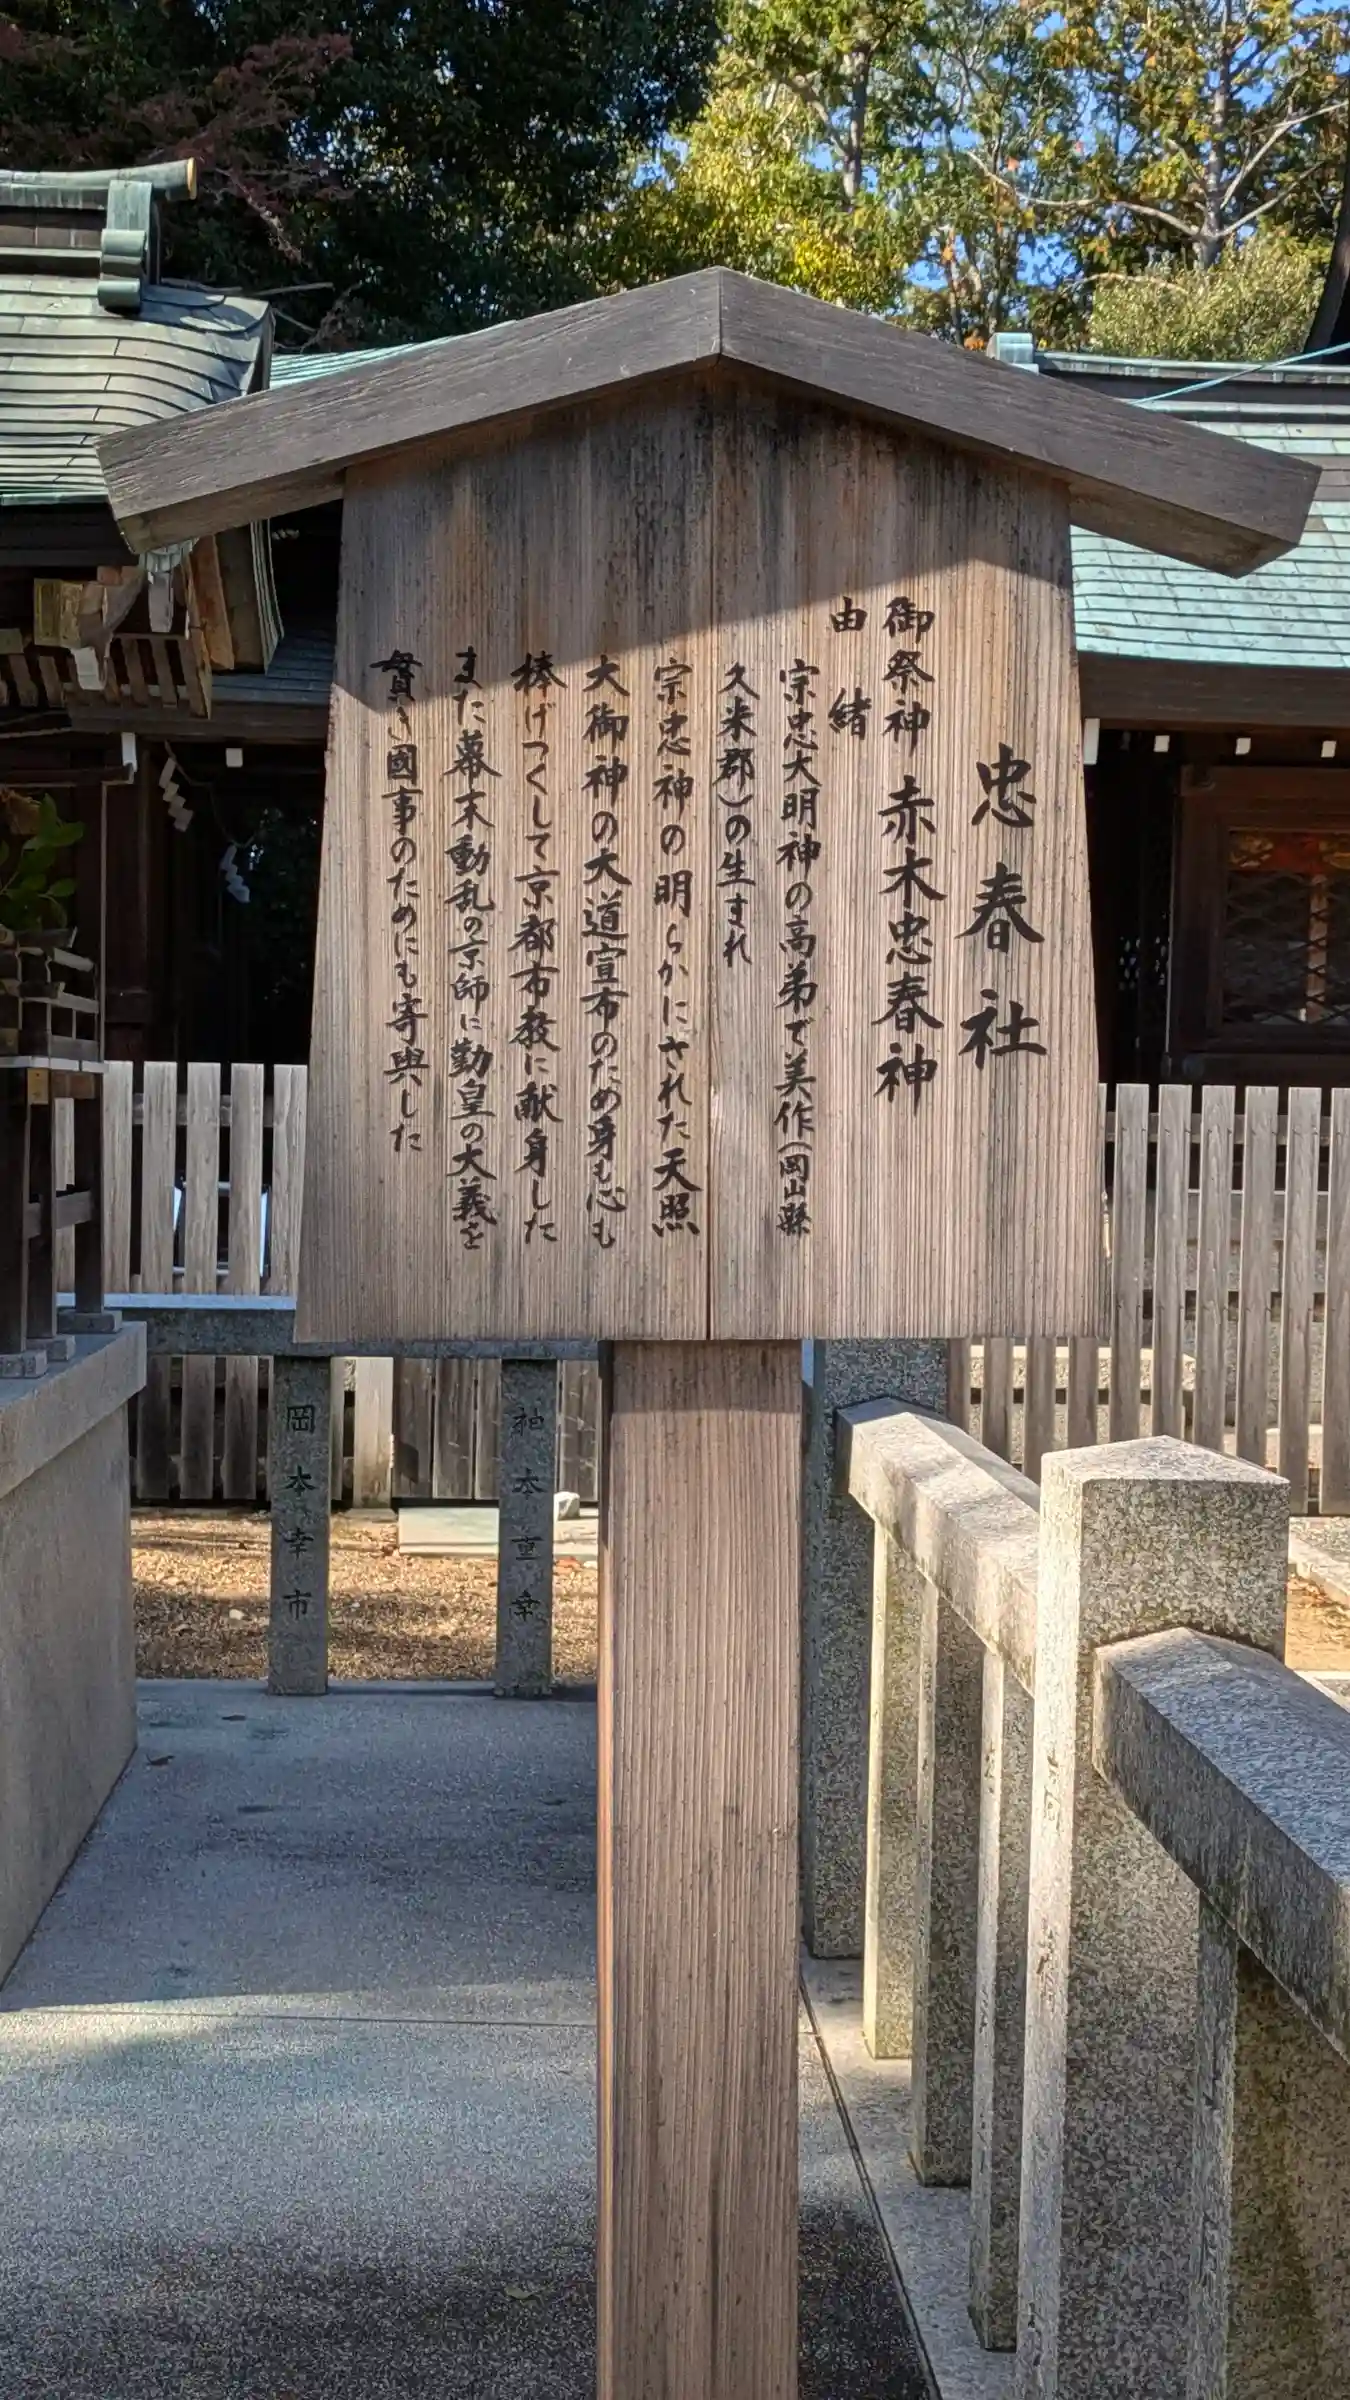 忠春社
御祭神 赤木忠春神
由緒
宗忠大明神の高弟で美作(岡山縣
久米郡)の生まれ
宗忠神の明らかにされた天照
大御神の大道宣布のため身も心も
棒げつくして京都布教に献身した
また幕末動乱の京師に勤皇の大義を
貫き國事のためにも寄與した
岡本幸市
神本重幸